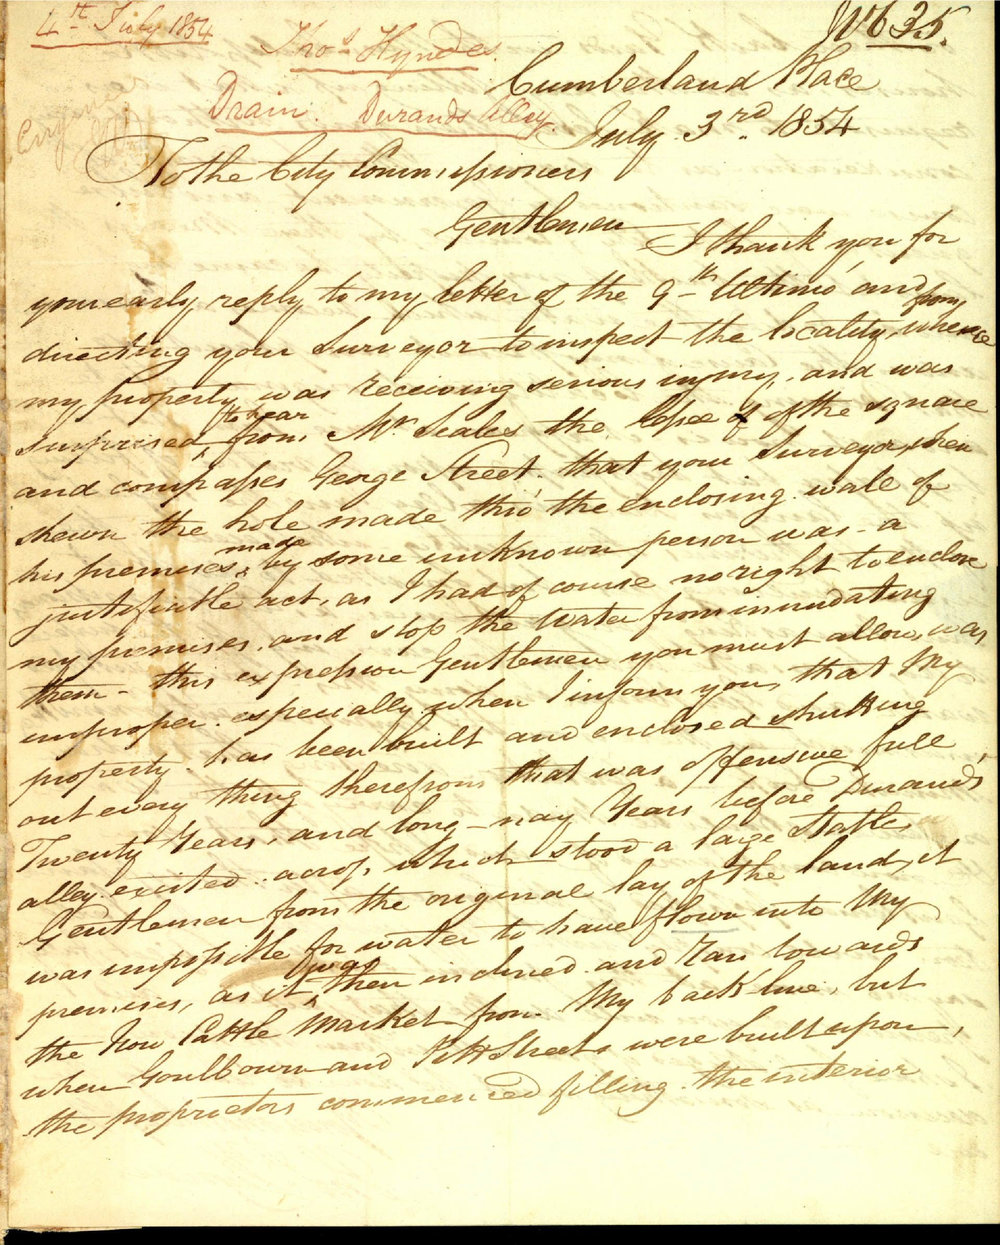 4th July 1854
No 635.
Thos Hyndes
Cumberland Place
Drain. Durands Alley.
July 3rd 1854
To the City Commissioners
Gentlemen
I thank you for
your early reply to my letter of the 9th Ultimo, and from
directing your Surveyor to inspect the locality, whence
my property was receiving serious injury, and was
surprised to hear from Mr Scales the lessee of the square
and compasses George Street that your Surveyor when
shewn the hole made thro' the enclosing wall of
his premises made by some unknown person was a
justifiable act, as I had of course no right to enclose
my premises, and stop the Water from inundating
them - this expression Gentlemen you must allow, was
improper especially when I inform you, that My
property has been built and enclosed shutting
out every thing therefrom that was offensive full
Twenty Years, and long - nay Years before Durand's
alley existed across which stood a large Stable,
Gentlemen from the original lay of the land, it
was impossible for water to have flown into My
premises, as it was then inclined and ran towards
the Now Cattle Market from My back line, but
when Goulbourn and Pitt Streets were built upon,
the proprietors commenced filling the interior